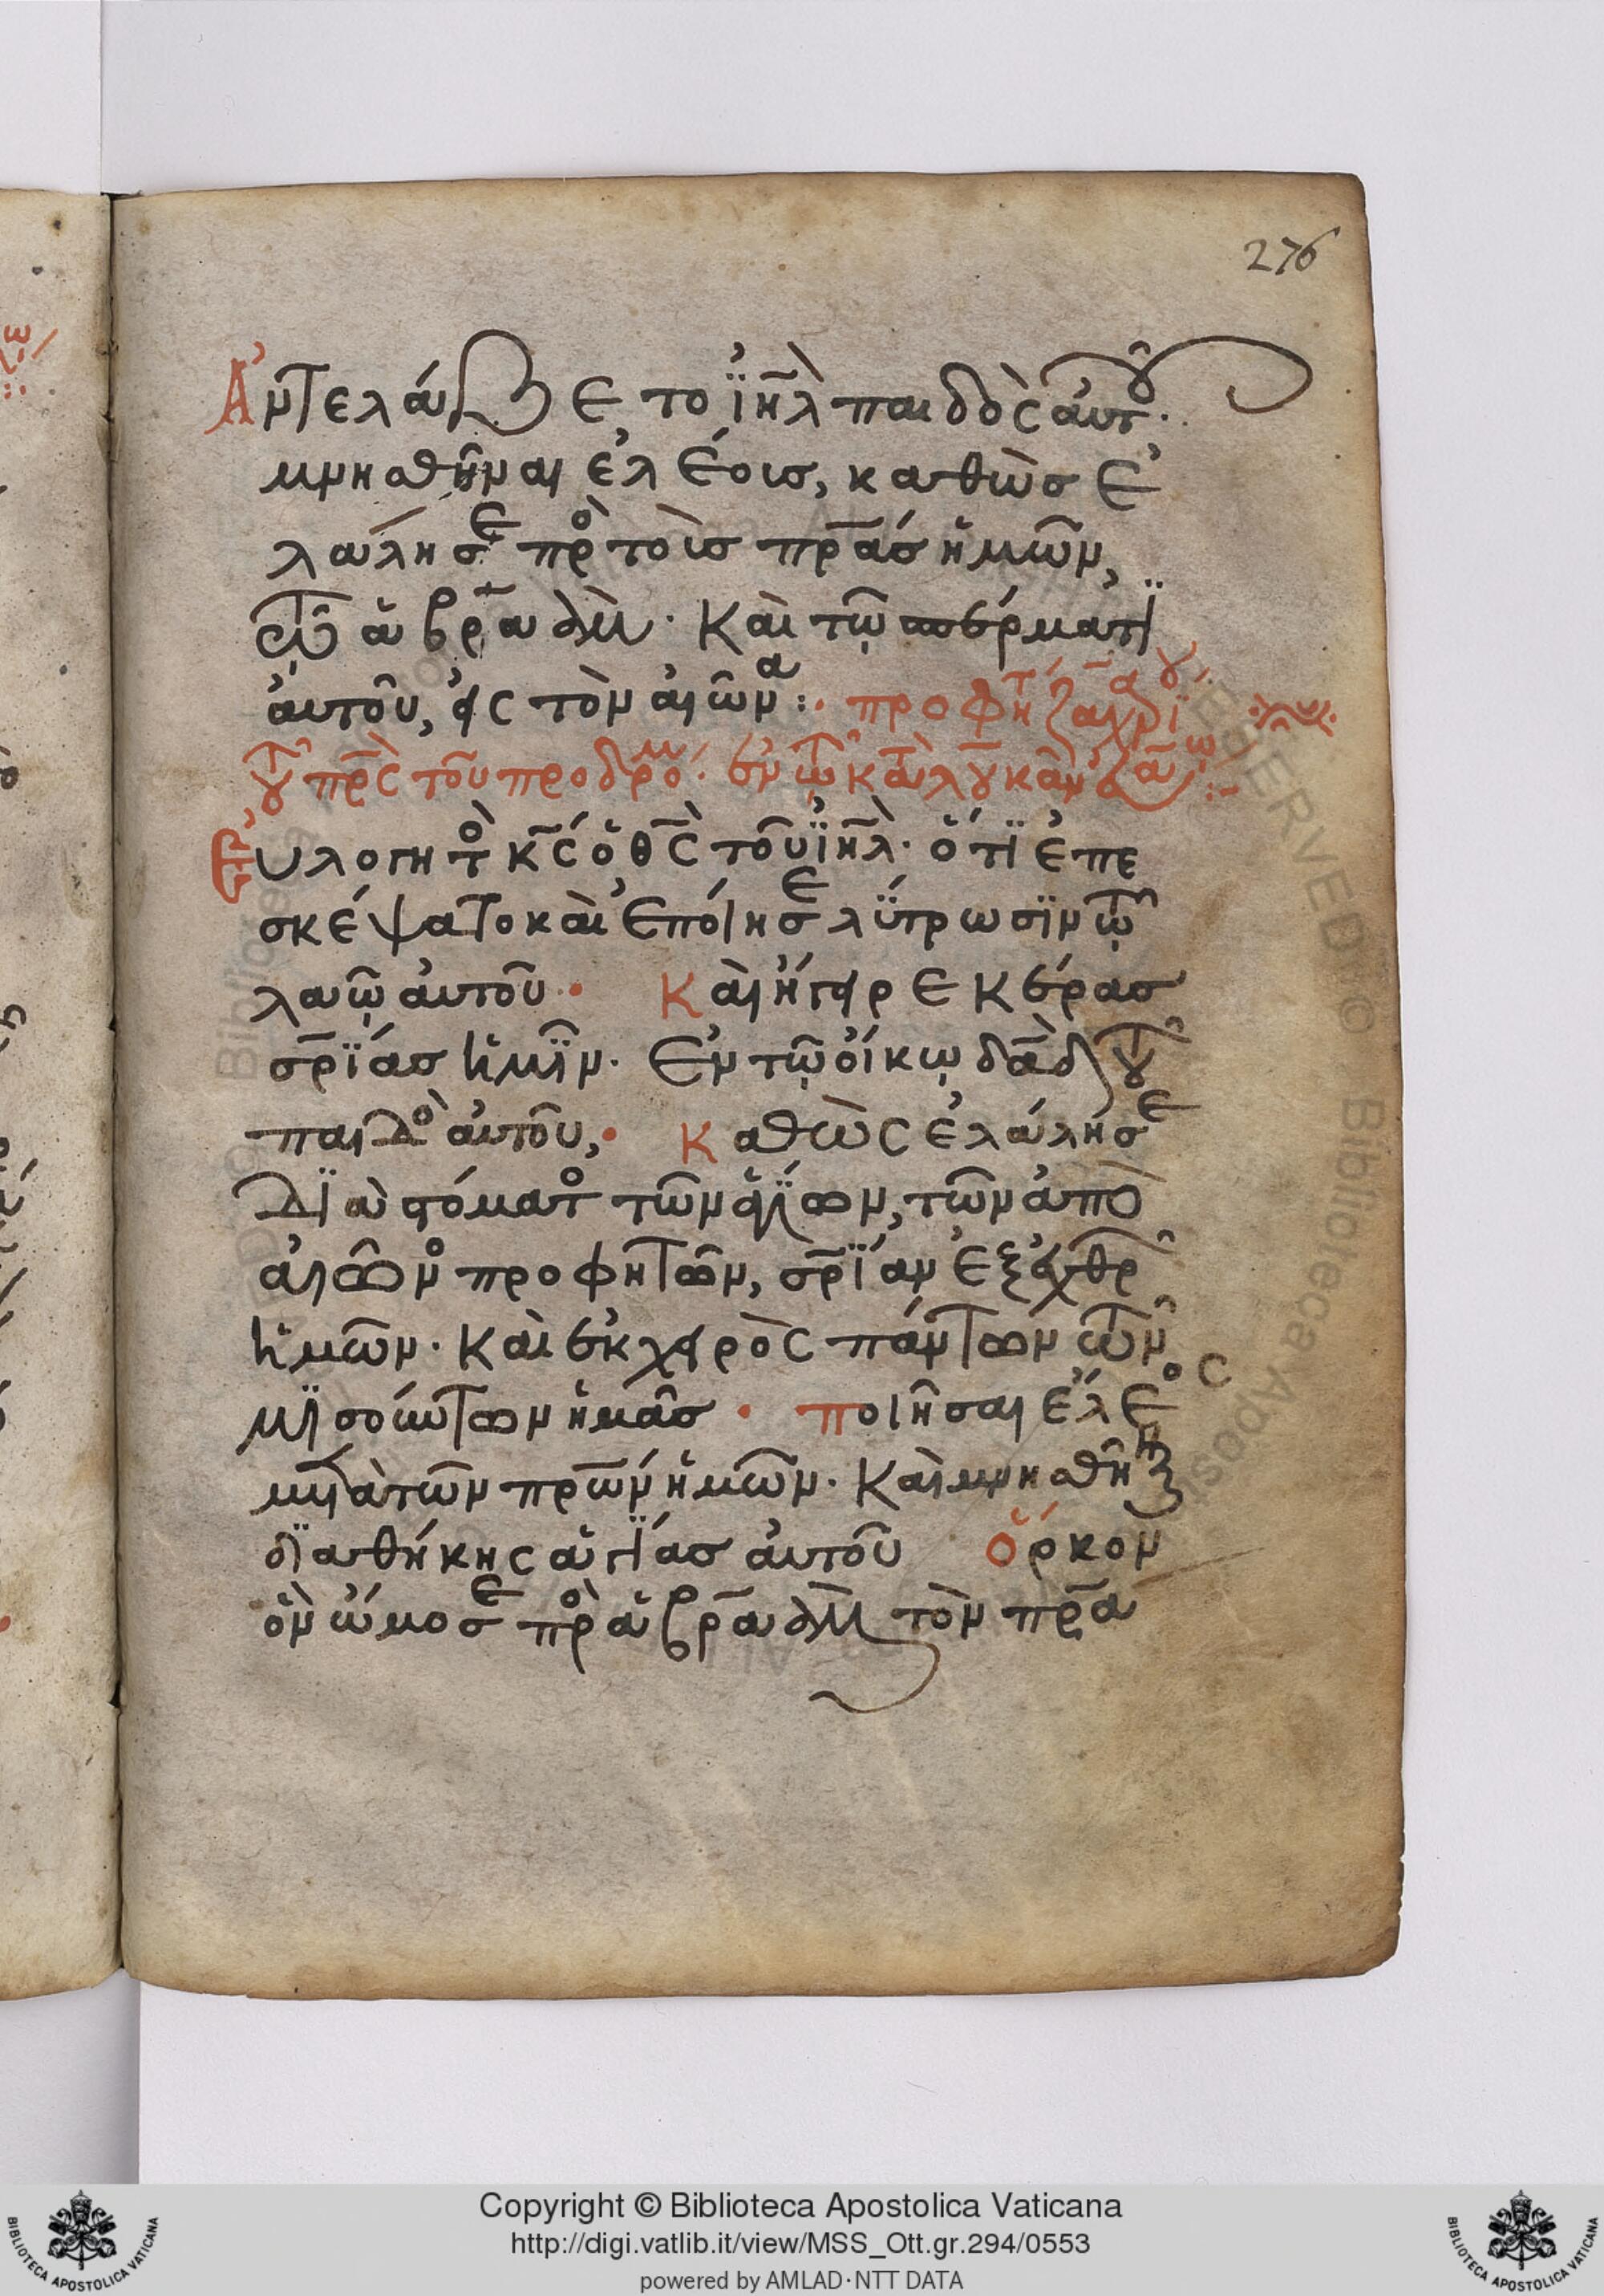 276
Ἀντελάβετο ἰῆλ παιδὸς αὐτοῦ·
μνησθῆναι ἐλέους, καθὼς ἐ
λάλησε πρὸ τοὺς πρ̅ας ἡμῶν,
τῶ ἀβραὰμ· Καὶ τῶ σπέρματϊ
αὐτοῦ, εἰς τὸν αἰῶνα :· προφητ ζαχαρίου
τοῦ πρ̅ς τοῦ προδρόμου· ἐν τῶ κατὰ λουκᾶν
Εὐλογητὸ κ̅ς ὁ θ̅ς τοῦ ἰῆλ· ὅτϊ ἐπε
σκέψατο καὶ ἐποίησε λύτρωσϊν τῶ
λαῶ αὐτοῦ· Καὶ ἤγειρε κέρας
σ̅ρϊας ἡμῖν· Ἐν τῶ οἴκω δα̅δ τοῦ
παιδὸ αὐτοῦ,· Καθὼς ἐλάλησε
διὰ στόματο τῶν ἁγίων, τῶν ἀπ
αἰῶνο προφητῶν, σ̅ρϊαν ἐξ ἐχθρ
ἡμῶν· Καὶ ἐκ χειρὸς πάντων τῶν
μισούντων ἡμᾶς· ποιῆσαι ἔλεος
μετὰ τῶν πρ̅ων ἡμῶν· Καὶ μνησθῆν
διαθήκης ἁγίας αὐτοῦ Ὅρκον
ὃν ὤμοσε πρὸ ἀβραὰμ τὸν πρ̅α
Copyright © Biblioteca Apostolica Vaticana
http://digi.vatlib.it/view/MSS_Ott.gr.294/0553
powered by AMLAD·NTT DATA
BIBLIOTECA APOSTOLICA VATICANA
BIBLIOTECA APOSTOLICA VATICANA